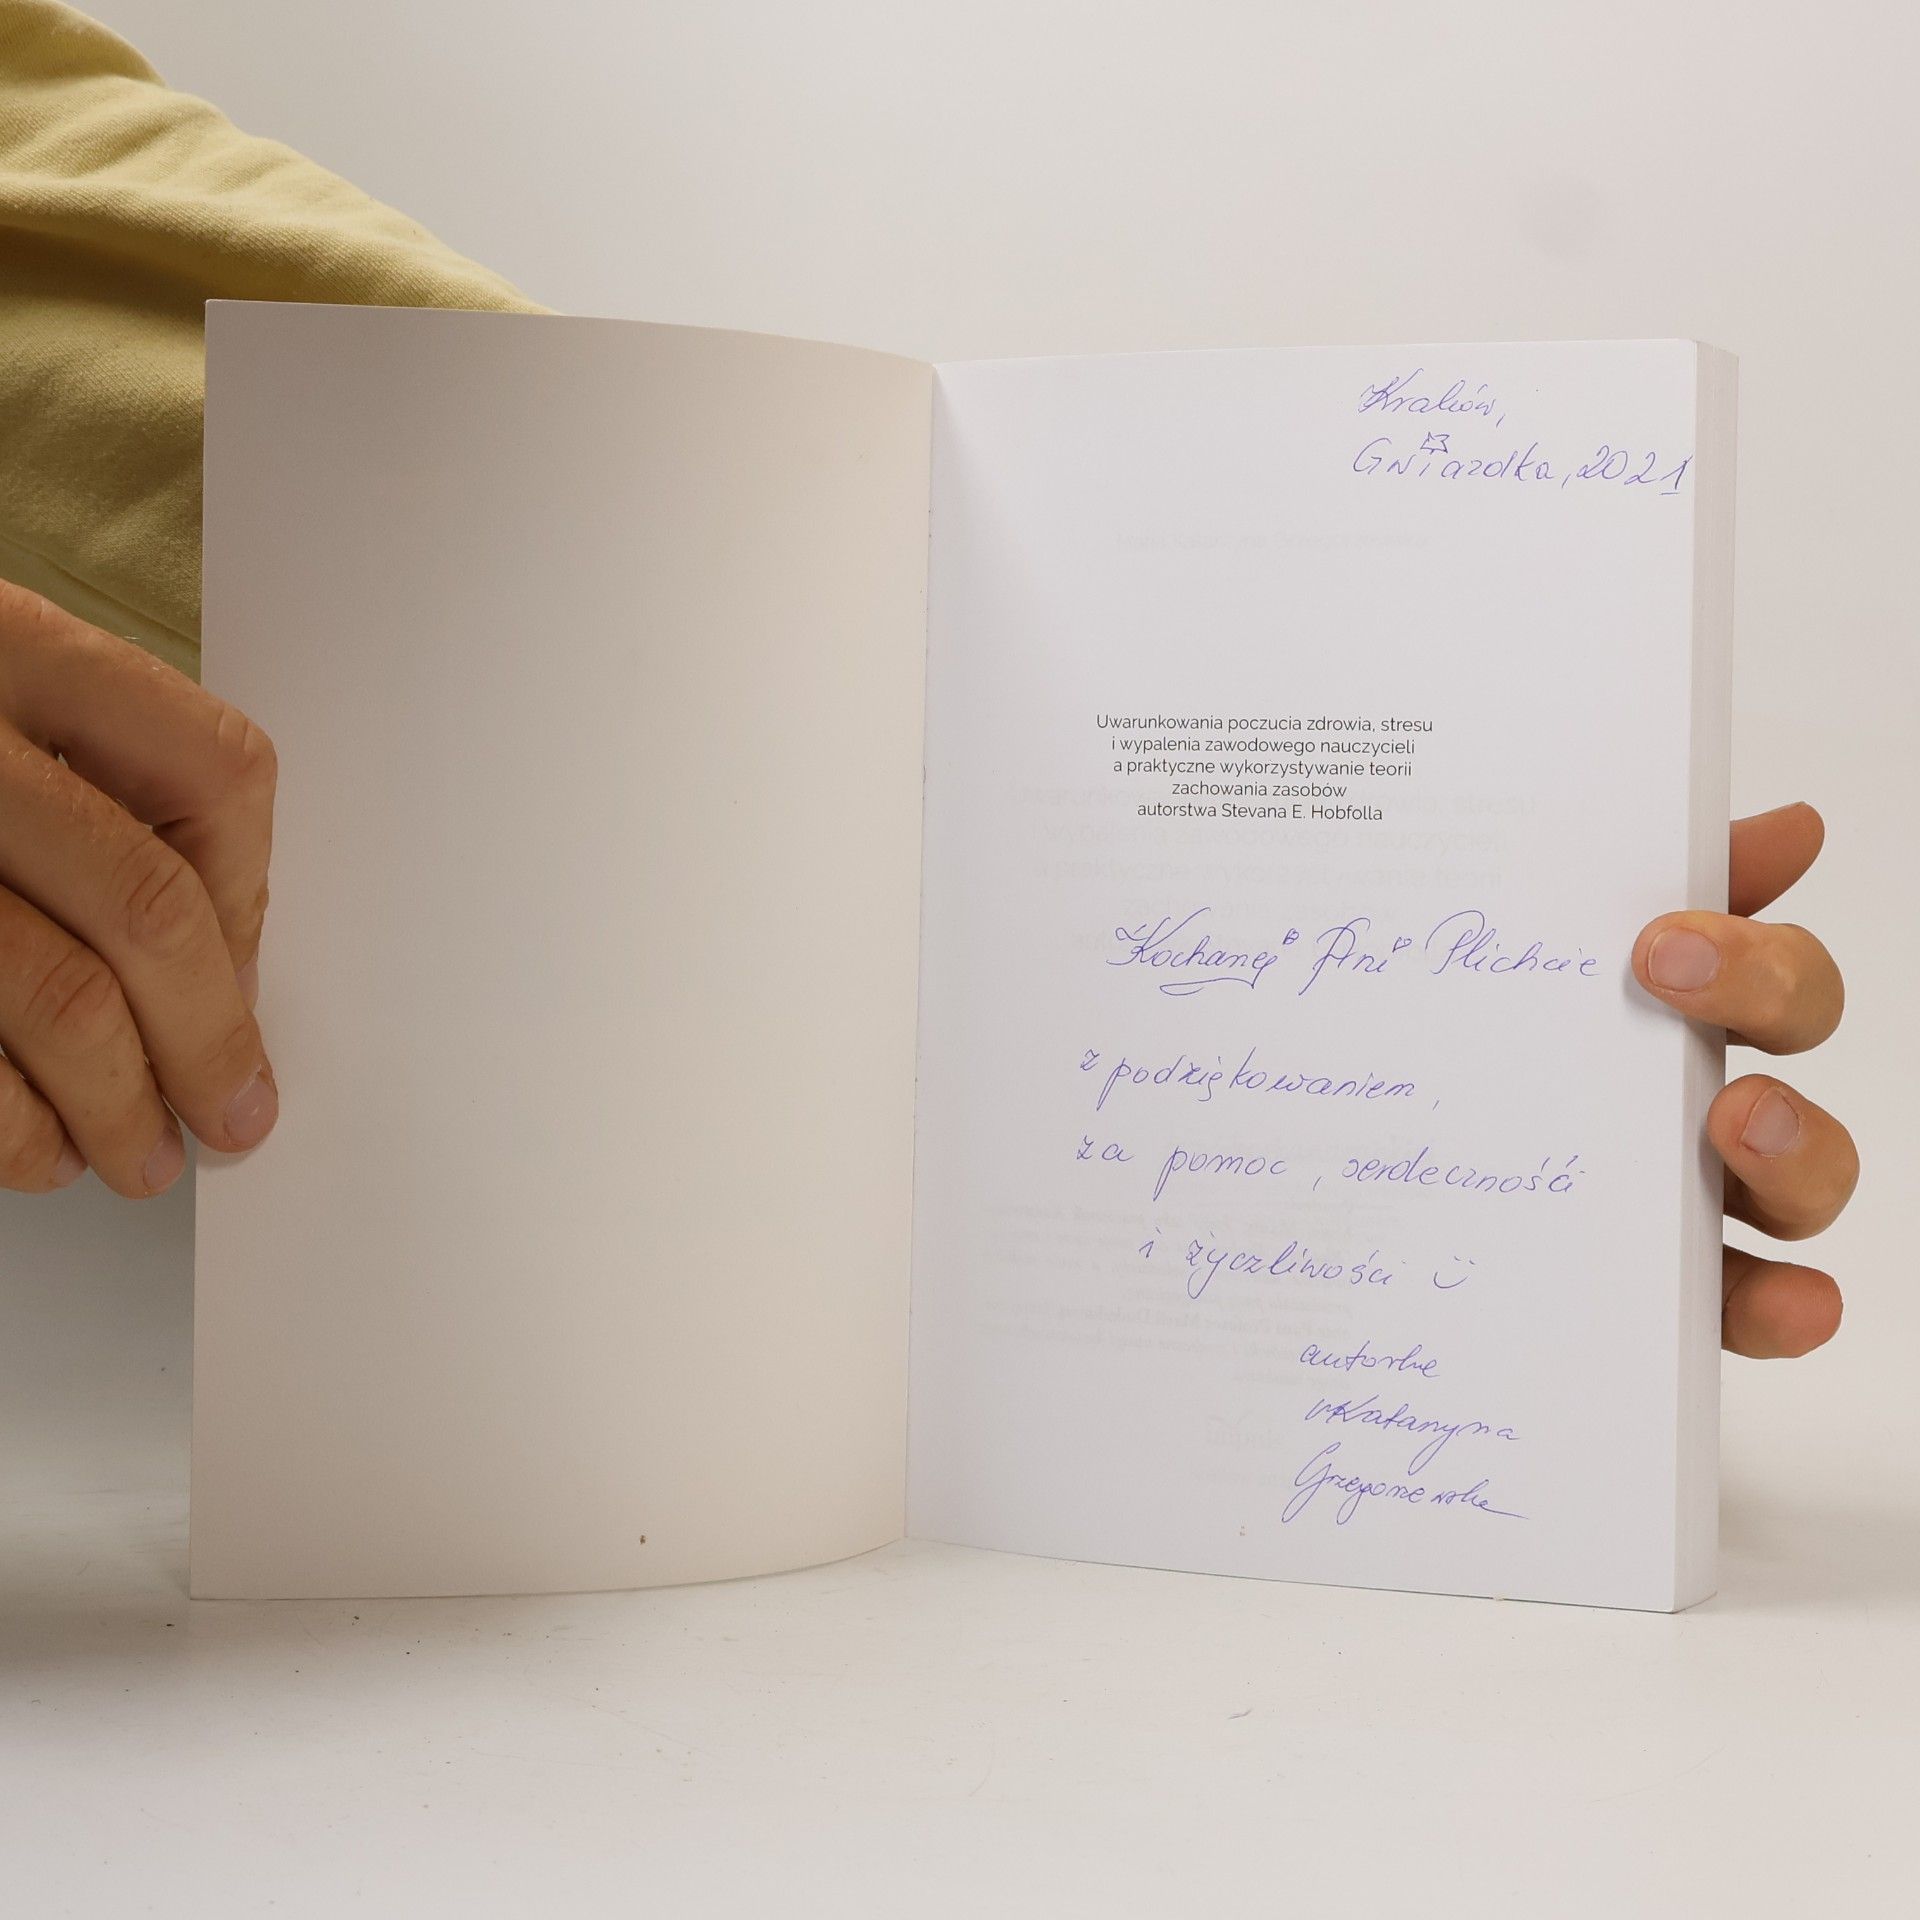 Kraków,
Gwiazdka, 2021
Uwarunkowania poczucia zdrowia, stresu
i wypalenia zawodowego nauczycieli
a praktyczne wykorzystywanie teorii
zachowania zasobów
autorstwa Stevana E. Hobfolla
Kochanej Ani Plichcie
z podziękowaniem,
za pomoc, serdeczność
i życzliwości
autorka
Katarzyna
Grzegorzewska